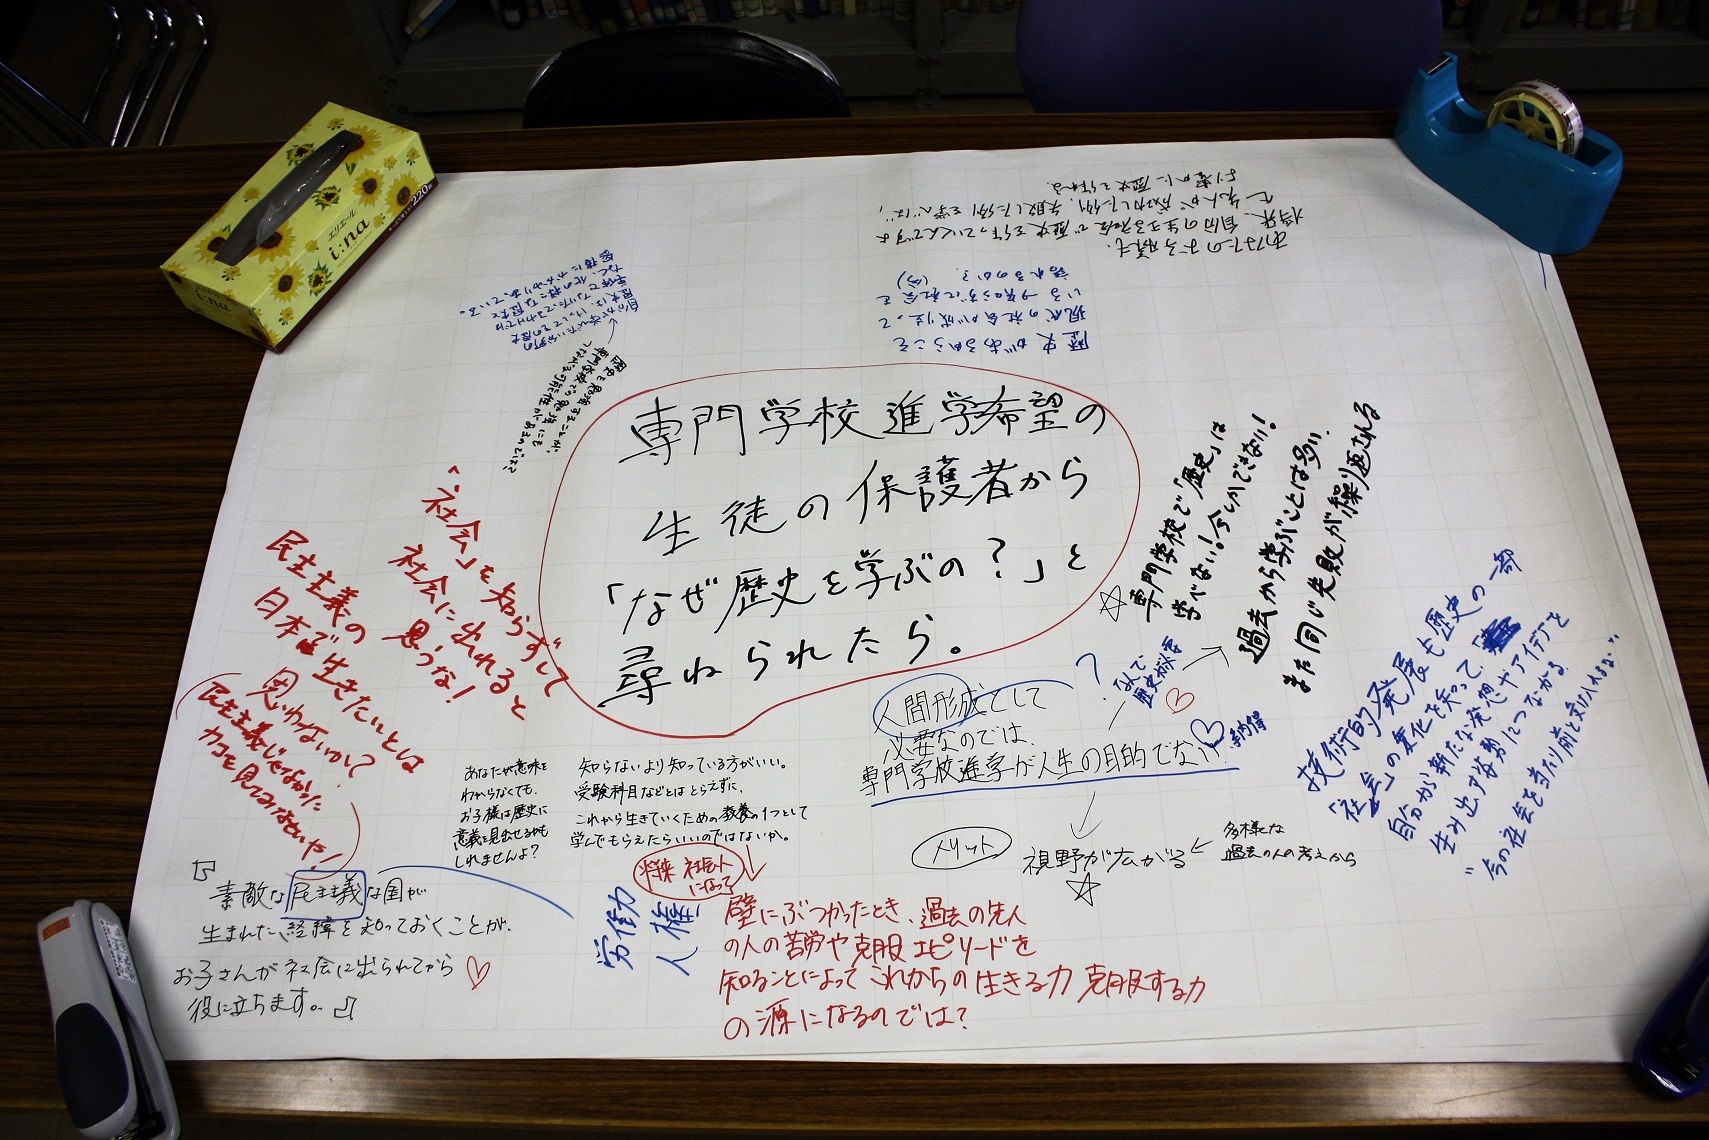 専門学校進学希望の
生徒の保護者から
「なぜ歴史を学ぶの？」と
尋ねられたら。
あなたのお子様も、
将来、自分の生きる知恵で歴史を作っていくんですよ
先人が成功した例、失敗した例を学べば、
より豊かに歴史を作れる。
歴史があるからこそ
現代の社会が成り立って
いる
社会を
語れるのか？
歴史を勉強することが、
専門学校での勉強にも
つながる可能性があるのでは？
「社会」を知らずして
社会に出れると
思うな！
民主主義の
日本で生きたいとは
思わないかい？
民主主義じゃなかった
カコを見てみなせいや！
☆専門学校で「歴史」は
学べない！今しかできない！
過去から学ぶことは多い
また同じ失敗が繰り返される
なんで、
歴史が必要
？
♡納得
人間形成として
必要なのでは、
専門学校進学が人生の目的でない
メリット
視野が広がる
☆
多様な
過去の人の考えから
技術的発展も歴史の一部
「社会」の変化を知って、
自分が新たな発想やアイデアを
生み出す姿勢につながる。
"今の社会を当たり前と受け入れない"
あなたが意味を
わからなくても、
お子様は歴史に
意義を見出せるかも
しれませんよ？
知らないより知っている方がいい。
受験科目などとはとらえずに、
これから生きていくための教養の1つとして
学んでもらえたらいいのではないか。
将来 社会人
になって
壁にぶつかったとき、過去の先人
の人の苦労や克服エピソードを
知ることによってこれからの生きる力 克服する力
の源になるのでは？
労働
人権
『素敵な民主主義な国が
生まれた、経緯を知っておくことが、
お子さんが社会に出られてから♡
役に立ちます。』
エリエール
i:na
220